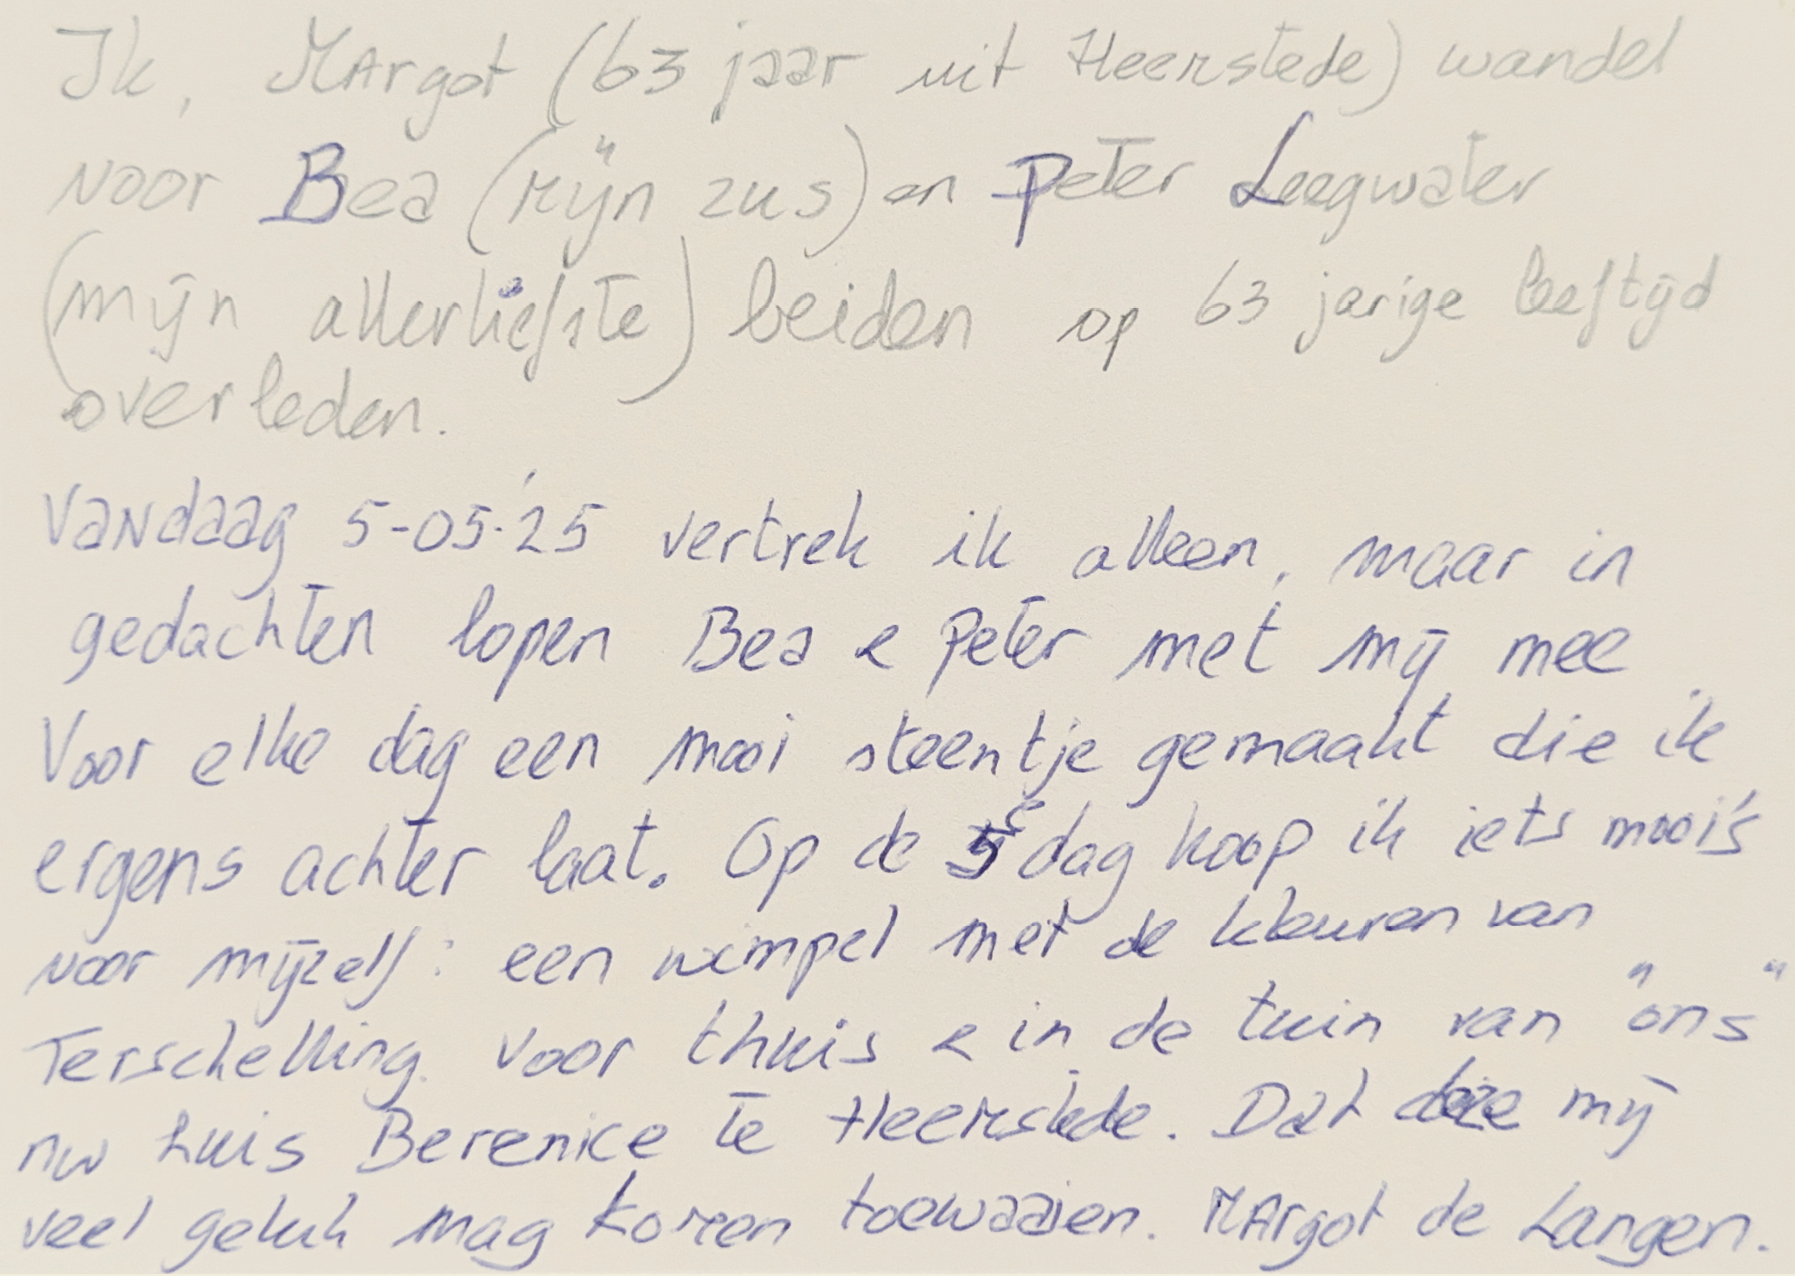 Ik, Margot (63 jaar uit Heemstede) wandel
voor Bea (mijn zus) en Peter Leegwater
(mijn allerliefste) beiden op 63 jarige leeftijd
overleden.
Vandaag 5-05-'25 vertrek ik alleen, maar in
gedachten lopen Bea & Peter met mij mee
Voor elke dag een mooi steentje gemaakt die ik
ergens achter laat. Op de 5e dag koop ik iets moois
voor mijzelf: een wimpel met de kleuren van
Terschelling. Voor thuis & in de tuin van "ons"
nw huis Berenice te Heemstede. Dat deze mij
veel geluk mag komen toewaaien. Margot de Langen.